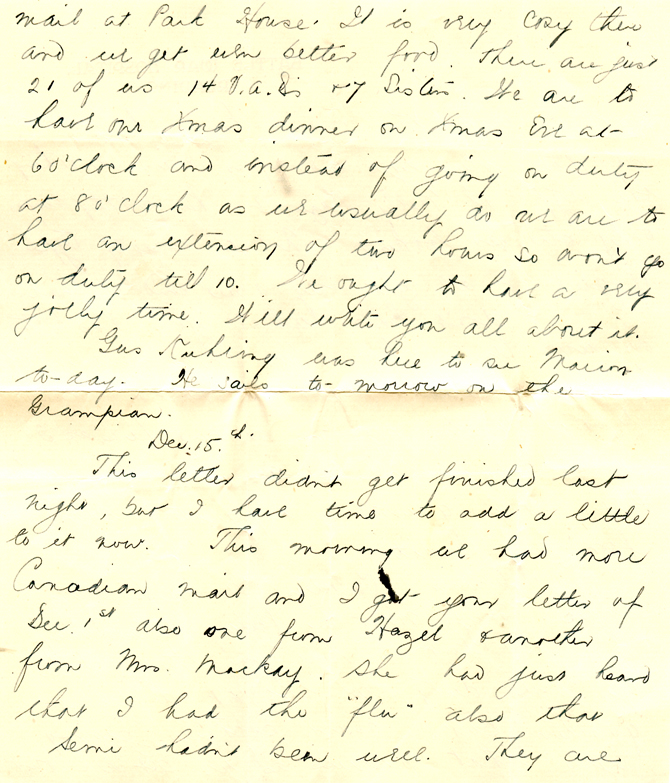 mail at Park House. It is very cosy there
and we get even better food. There are just
21 of us 14 V.A.Ds + 7 Sisters. We are to
have our Xmas dinner on Xmas Eve at
6 o'clock and instead of going on duty
at 8 o'clock as we usually do we are to
have an extension of two hours so won't go
on duty till 10. We ought to have a very
jolly time. Will write you all about it.
Gus was here to see Marion
to-day. He sails to-morrow on the
Grampian.
Dec. 15th.
This letter didn't get finished last
night, but I have time to add a little
to it now. This morning we had more
Canadian mail and I got your letter of
Dec. 1st also one from Hazel & another
from Mrs. Mackay. She had just heard
that I had the "flu" also that
hadn't been well. They are